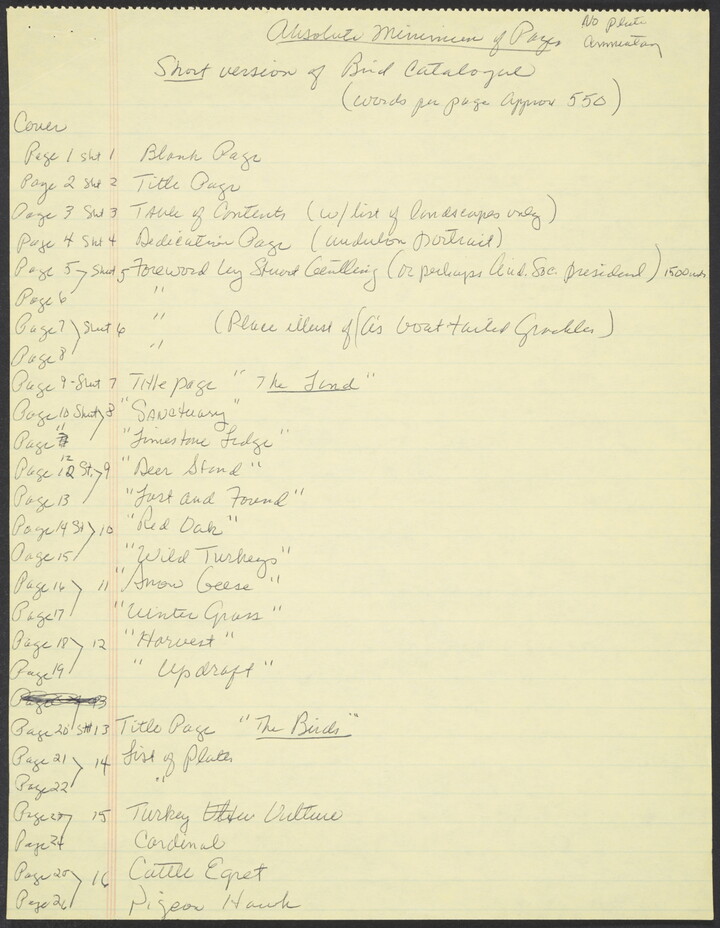 Absolute Minimum of Pages
No plate
commentary
Short version of Bird Catalogue
(words per page approx 550)
Cover
Page 1 Sht 1 Blank Page
Page 2 Sht 2 Title Page
Page 3 Sht 3 Table of Contents (w/ list of landscapes only)
Page 4 Sht 4 Dedication Page (audubon portrait)
Page 5 Sheet 5 Foreword by Stuart Gentling (or perhaps Aud. Soc. president) 1500 wds
Page 6 "
Page 7 Sheet 6 " (Place illust of as boat tailed Grackles)
Page 8 "
Page 9 - Sheet 7 Title page "The Land"
Page 10 Sheet 8 "Sanctuary"
Page 11 "Limestone Ledge"
Page 12 St. 9 "Deer Stand"
Page 13 "Lost and Found"
Page 14 St 10 "Red Oak"
Page 15 "Wild Turkeys"
Page 16 11 "Snow Geese"
Page 17 "Winter Grass"
Page 18 12 "Harvest"
Page 19 "Updraft"
Page 20 Sht 13 Title Page "The Birds"
Page 21 14 List of Plates
Page 22 "
Page 15 Turkey Vulture
Page 24 Cardinal
Page 16 Cattle Egret
Page 26 Pigeon Hawk